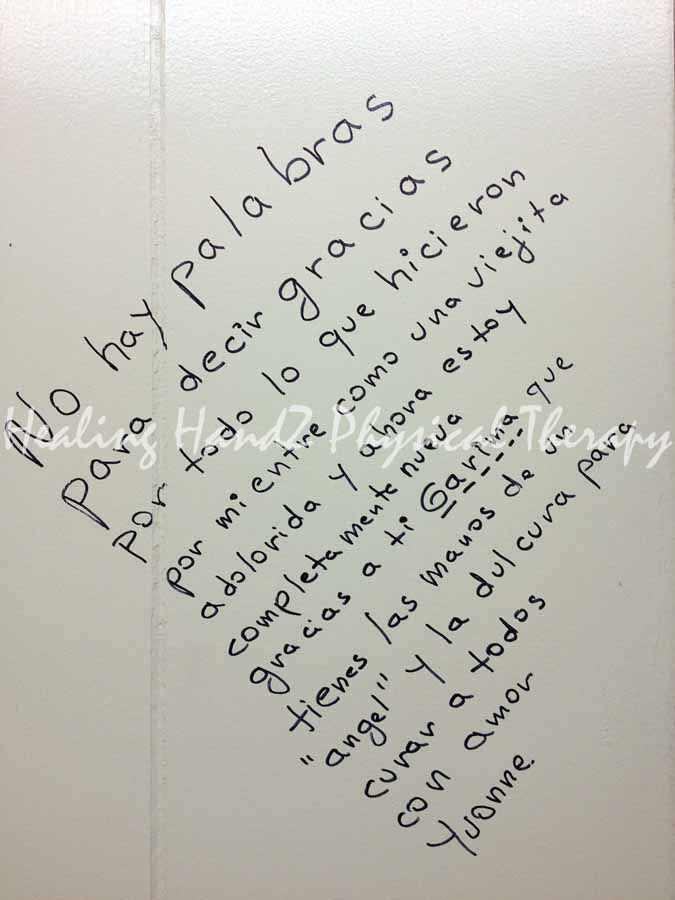 No hay palabras
para decir gracias
por todo lo que hicieron
por mi entre como una viejita
adolorida y ahora estoy
completamente nueva
gracias a ti Garima que
tienes las manos de un
"angel" y la dulcura para
curar a todos
con amor
Yvonne
Healing HandZ Physical Therapy